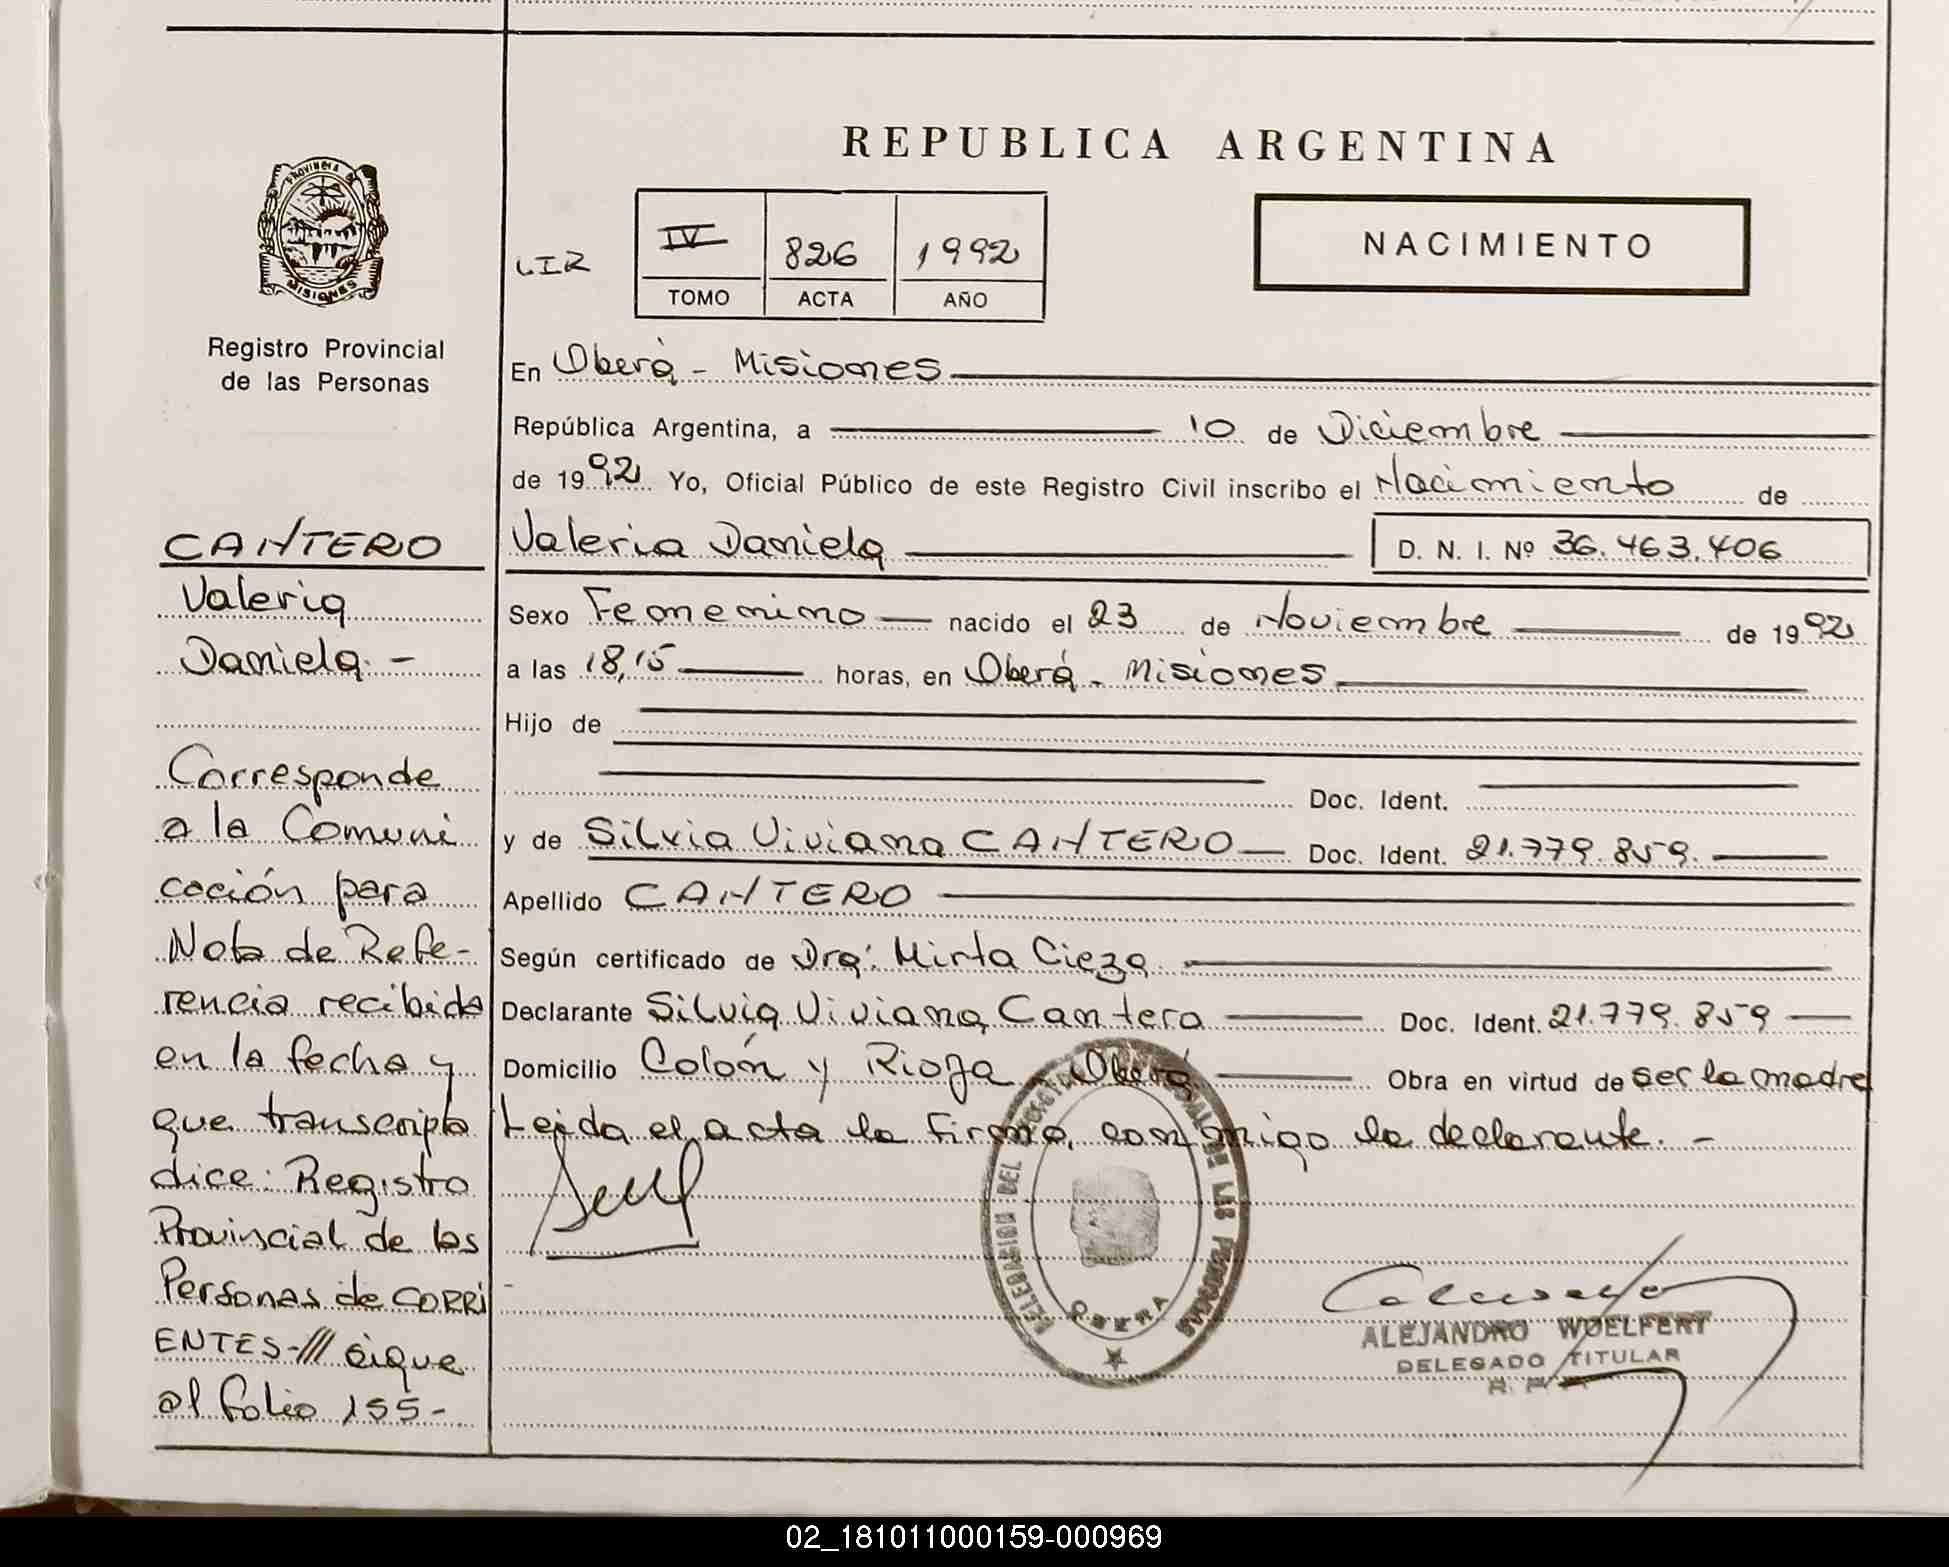 REPUBLICA ARGENTINA
PROVINCIA DE
MISIONES
Registro Provincial
de las Personas
LIZ
IV 826 1992
TOMO ACTA AÑO
NACIMIENTO
En Oberá - Misiones
República Argentina, a 10 de Diciembre
de 1992 Yo, Oficial Público de este Registro Civil inscribo el Nacimiento de
Valeria Daniela D. N. I. Nº 36.463.406
Sexo Femenino nacido el 23 de Noviembre de 1992
a las 18,15 horas, en Oberá - Misiones
Hijo de
Doc. Ident.
y de Silvia Viviana CANTERO Doc. Ident. 21.779.859.
Apellido CANTERO
Según certificado de Dra: Mirta Cieza
Declarante Silvia Viviana Cantero Doc. Ident. 21.779.859
Domicilio Colón y Rioja - Oberá Obra en virtud de ser la madre
Leida el acta la firma, conmigo la declarante. -
CANTERO
Valeria
Daniela. -
Corresponde
a la Comuni
cación para
Nota de Refe-
rencia recibida
en la fecha y
que transcripta
dice: Registro
Provincial de las
Personas de CORRI
ENTES-/// sigue
al folio 155-
DELEGACION DEL REGISTRO PROVINCIAL DE LAS PERSONAS
OBERA
ALEJANDRO WOELFERT
DELEGADO TITULAR
R. P. P.
02_181011000159-000969